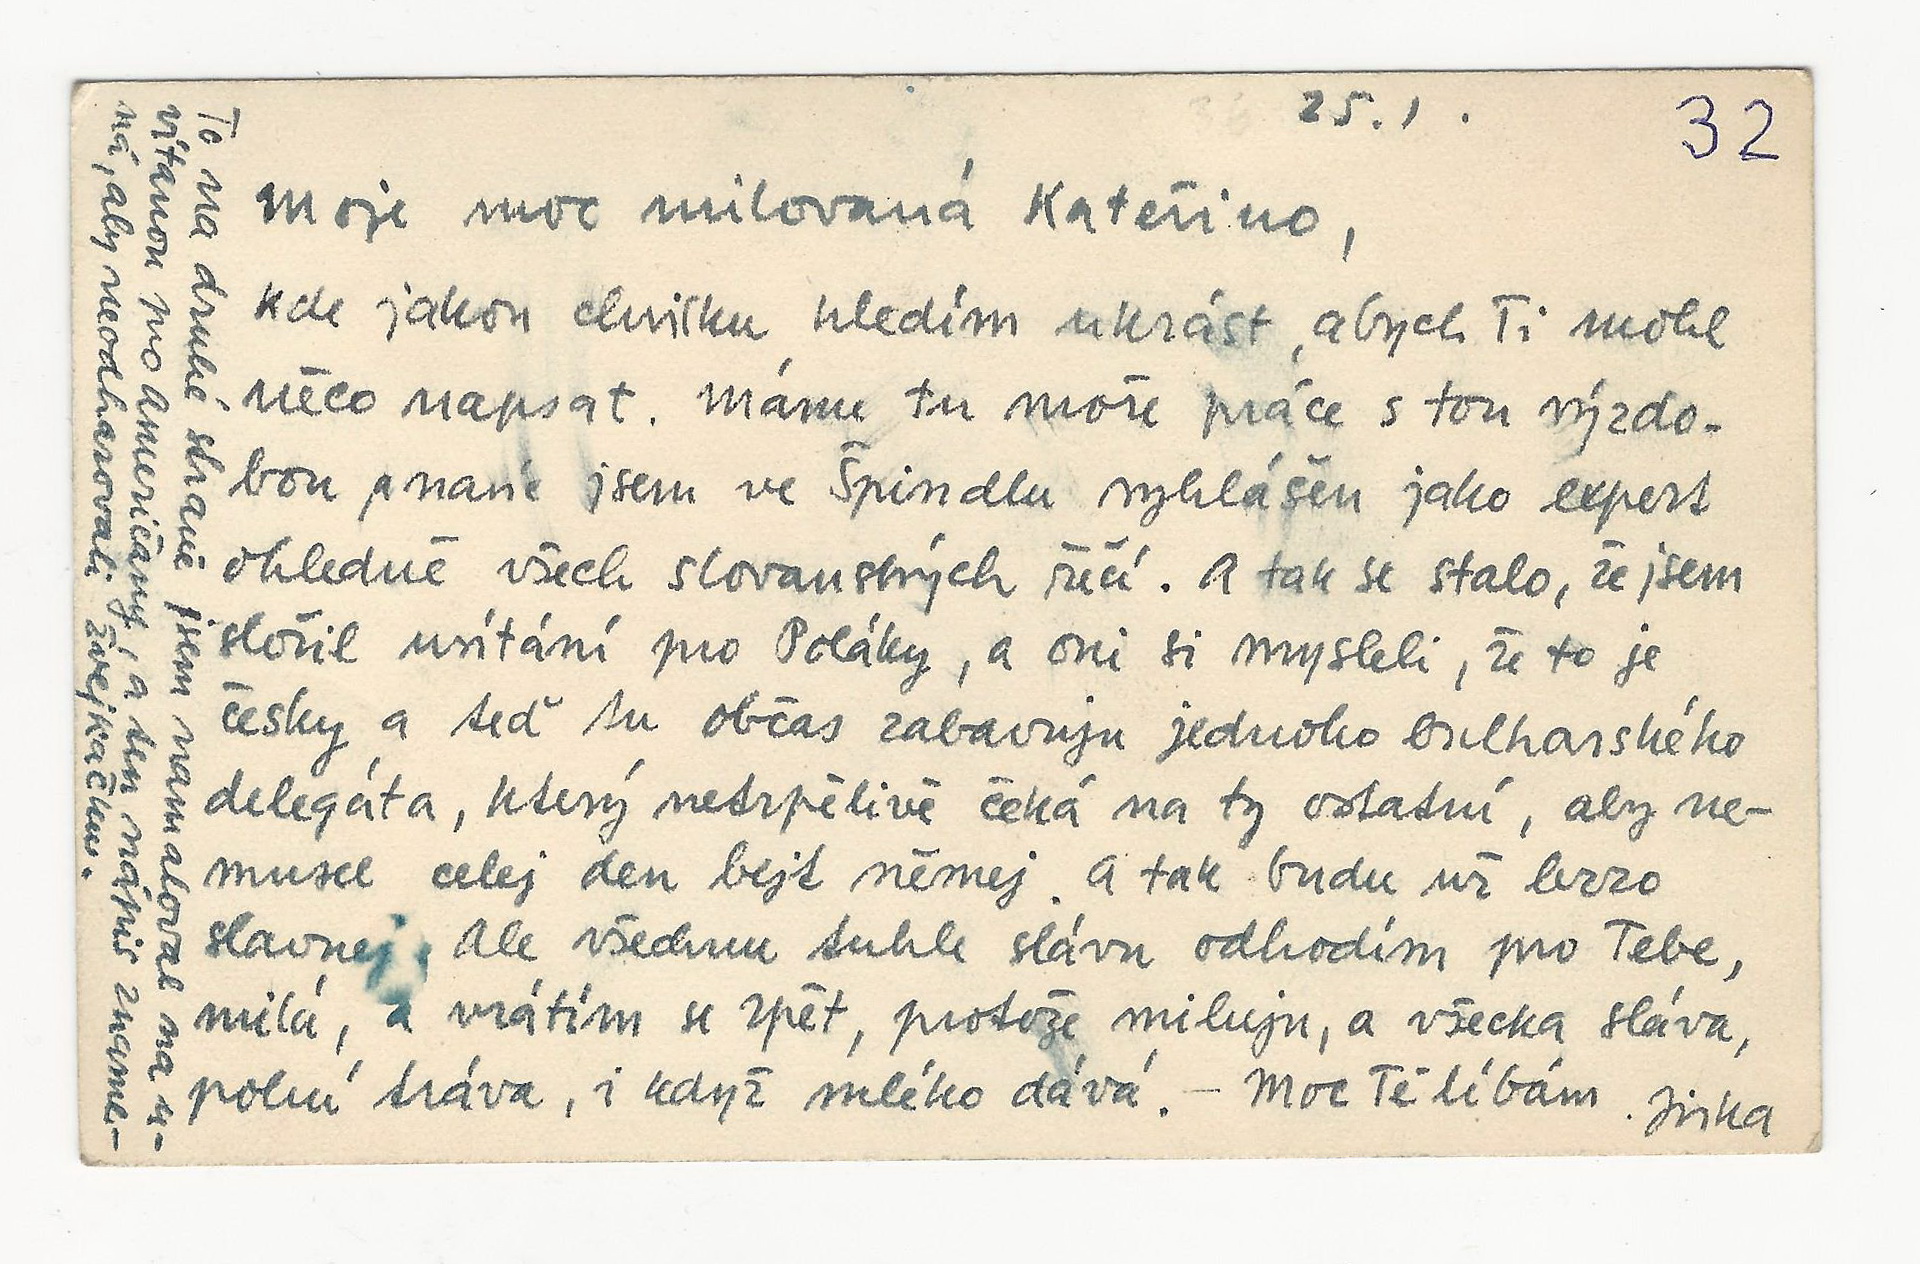 25.1.
32
Moje moc milovaná Kateřino,
kde jakou chvilku hledím ukrást, abych Ti mohl
něco napsat. Máme tu moře práce s tou výzdo-
bou a navíc jsem ve Špindlu vyhlášen jako expert
ohledně všech slovanských řečí. A tak se stalo, že jsem
složil uvítání pro Poláky, a oni si mysleli, že to je
česky, a teď tu občas zabavuju jednoho bulharského
delegáta, který netrpělivě čeká na ty ostatní, aby ne-
musel celej den bejt němej. A tak budu už brzo
slavnej. Ale všechnu tuhle slávu odhodím pro Tebe,
milá, a vrátím se zpět, protože miluju, a všecka sláva,
polní tráva, i když mlíko dává. – Moc Tě líbám. Jirka
To na druhé straně jsem namaloval na u-
vítanou pro Američany, a ten nápis zname-
ná, aby neodharovali žvejkačkuu.